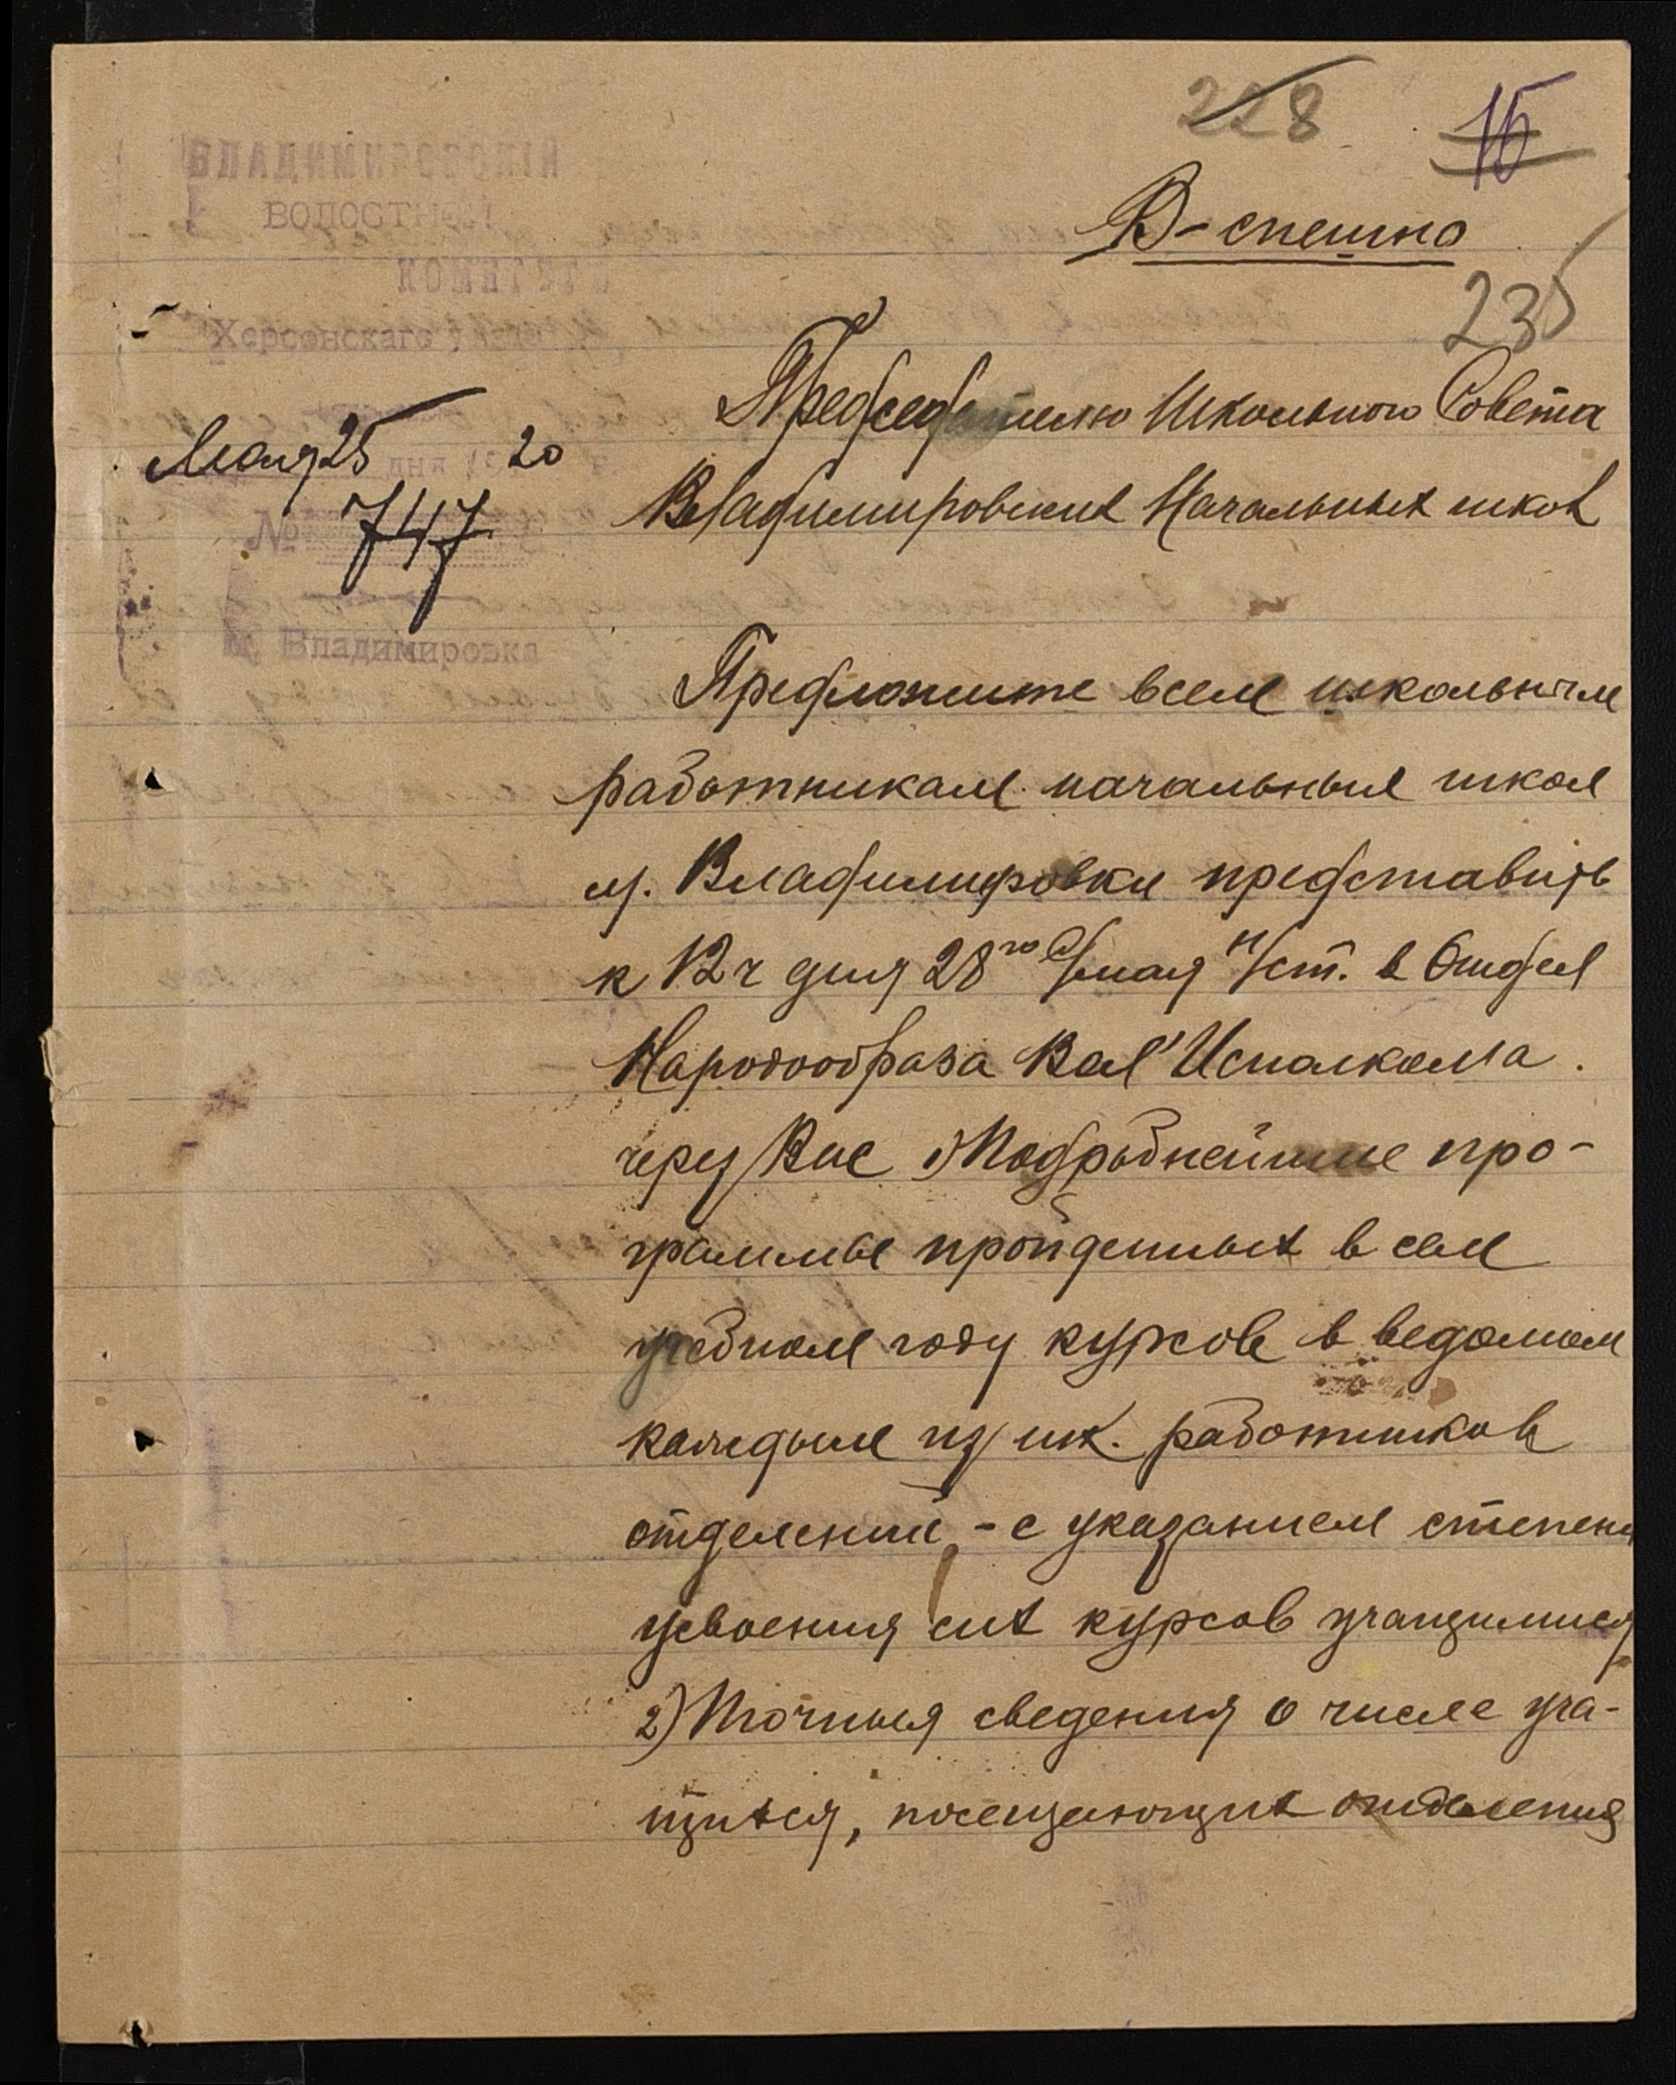 228 15
В-спешно
235
ВЛАДИМИРОВСКІЙ
ВОЛОСТНОЙ
КОМИТЕТЪ
Херсонскаго
Мая 25 дня 20
№ 747
м. Владимировка
Председателю Школьного Совета
Владимировских Начальных школ
Предложите всем школьным
работникам начальных школ
м. Владимировки представить
к 12 ч дня 28го с/мая н/ст. в Отдел
Народообраза Вол'Исполкома.
через Вас 1) Подробнейшие про-
граммы пройденных в сем
учебном году курсов в ведомом
каждым из шк. работников
отделении, - с указанием степени
усвоения сих курсов учащимися
2) Точныя сведения о числе уча-
щихся, посещающих отделения